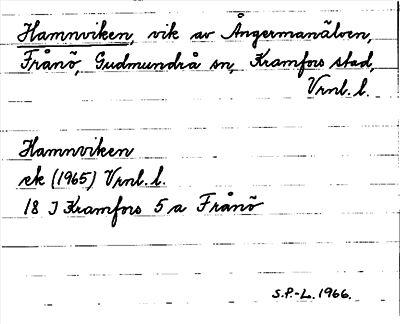 Hamnviken, vik av Ångermanälven,
Frånö, Gudmundrå sn, Kramfors stad,
Vrnl. l.
Hamnviken
ek (1965) Vrnl. l.
18 I Kramfors 5 a Frånö
S.P.-L. 1966.